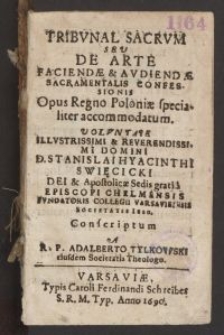 1164
TRIBVNAL SACRVM
SEU
DE ARTE
FACIENDÆ & AVDIENDÆ
SACRAMENTALIS CONFES-
SIONIS
Opus Regno Poloniæ specia-
liter accommodatum.
VOLVNTATE
ILLVSTRISSIMI & REVERENDISSI-
MI DOMINI
D. STANISLAI HYACINTHI
SWIĘCICKI
DEI & Apostolicæ Sedis gratiâ
EPISCOPI CHELMENSIS
FVNDATORIS COLLEGII VARSAVIENSIS
SOCIETATIS IESU,
Conscriptum
A
R. P. ADALBERTO TYLKOVVSKI
eiusdem Societatis Theologo.
VARSAVIÆ,
Typis Caroli Ferdinandi Schreiber
S. R. M. Typ. Anno 1690.